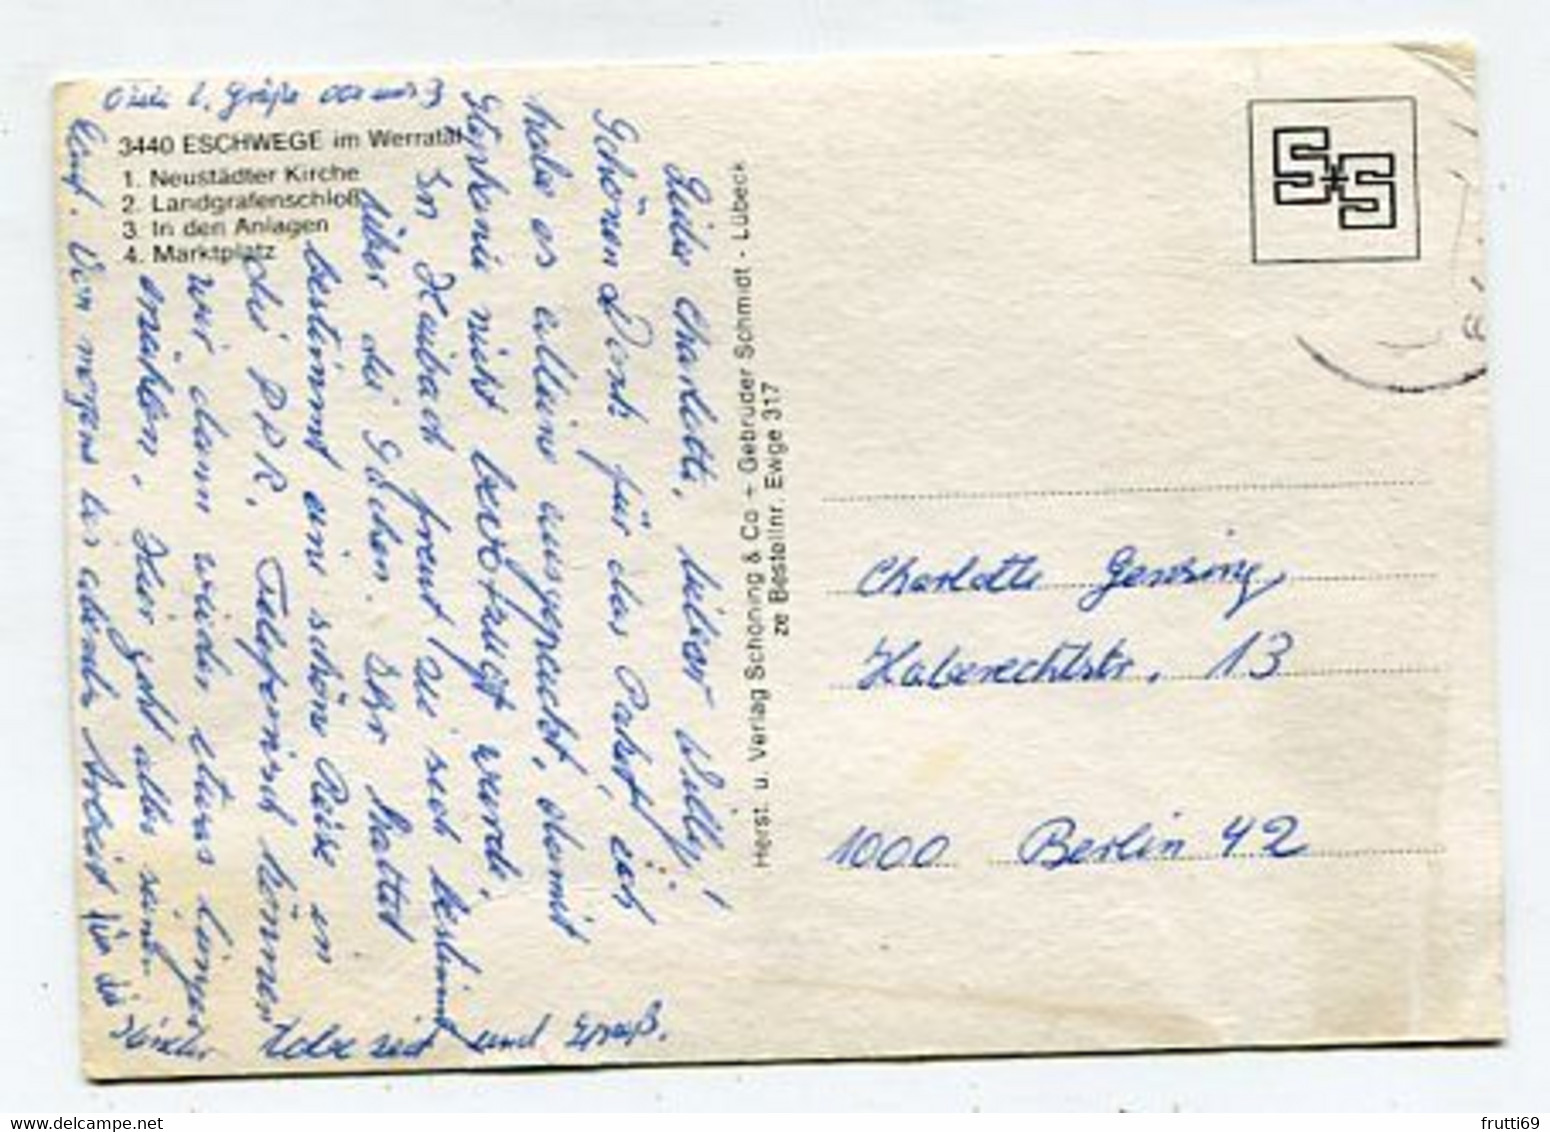 3440 ESCHWEGE im Werratal
1. Neustädter Kirche
2. Landgrafenschloß
3. In den Anlagen
4. Marktplatz
Liebe Charlotte, lieber Willy!
Schönen Dank für das Paket, ich
habe es alleine ausgepackt, damit
Stephanie nicht bevorzugt wurde.
In Haibach freut sie sich bestimmt
über die Sachen. Ihr hattet
bestimmt eine schöne Reise in
die DDR. Telefonisch können
wir dann wieder etwas länger
erzählen. Hier geht alles seinen
Lauf. Von morgens bis abends Arbeit für die
Kinder
und
Viele l. Grüße von uns 3
Herst. u. Verlag Schöning & Co + Gebrüder Schmidt - Lübeck
ze Bestellnr. Ewge 317
S+S
Charlotte Gensing,
Haberechtstr. 13
1000 Berlin 42
frutti69